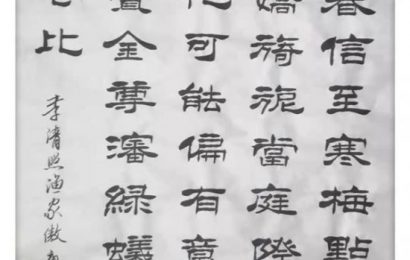 春信至寒梅點
嬌旖旎當庭際
化可能偏有意
賞金尊瀋綠蟻
比
李清照渔家傲